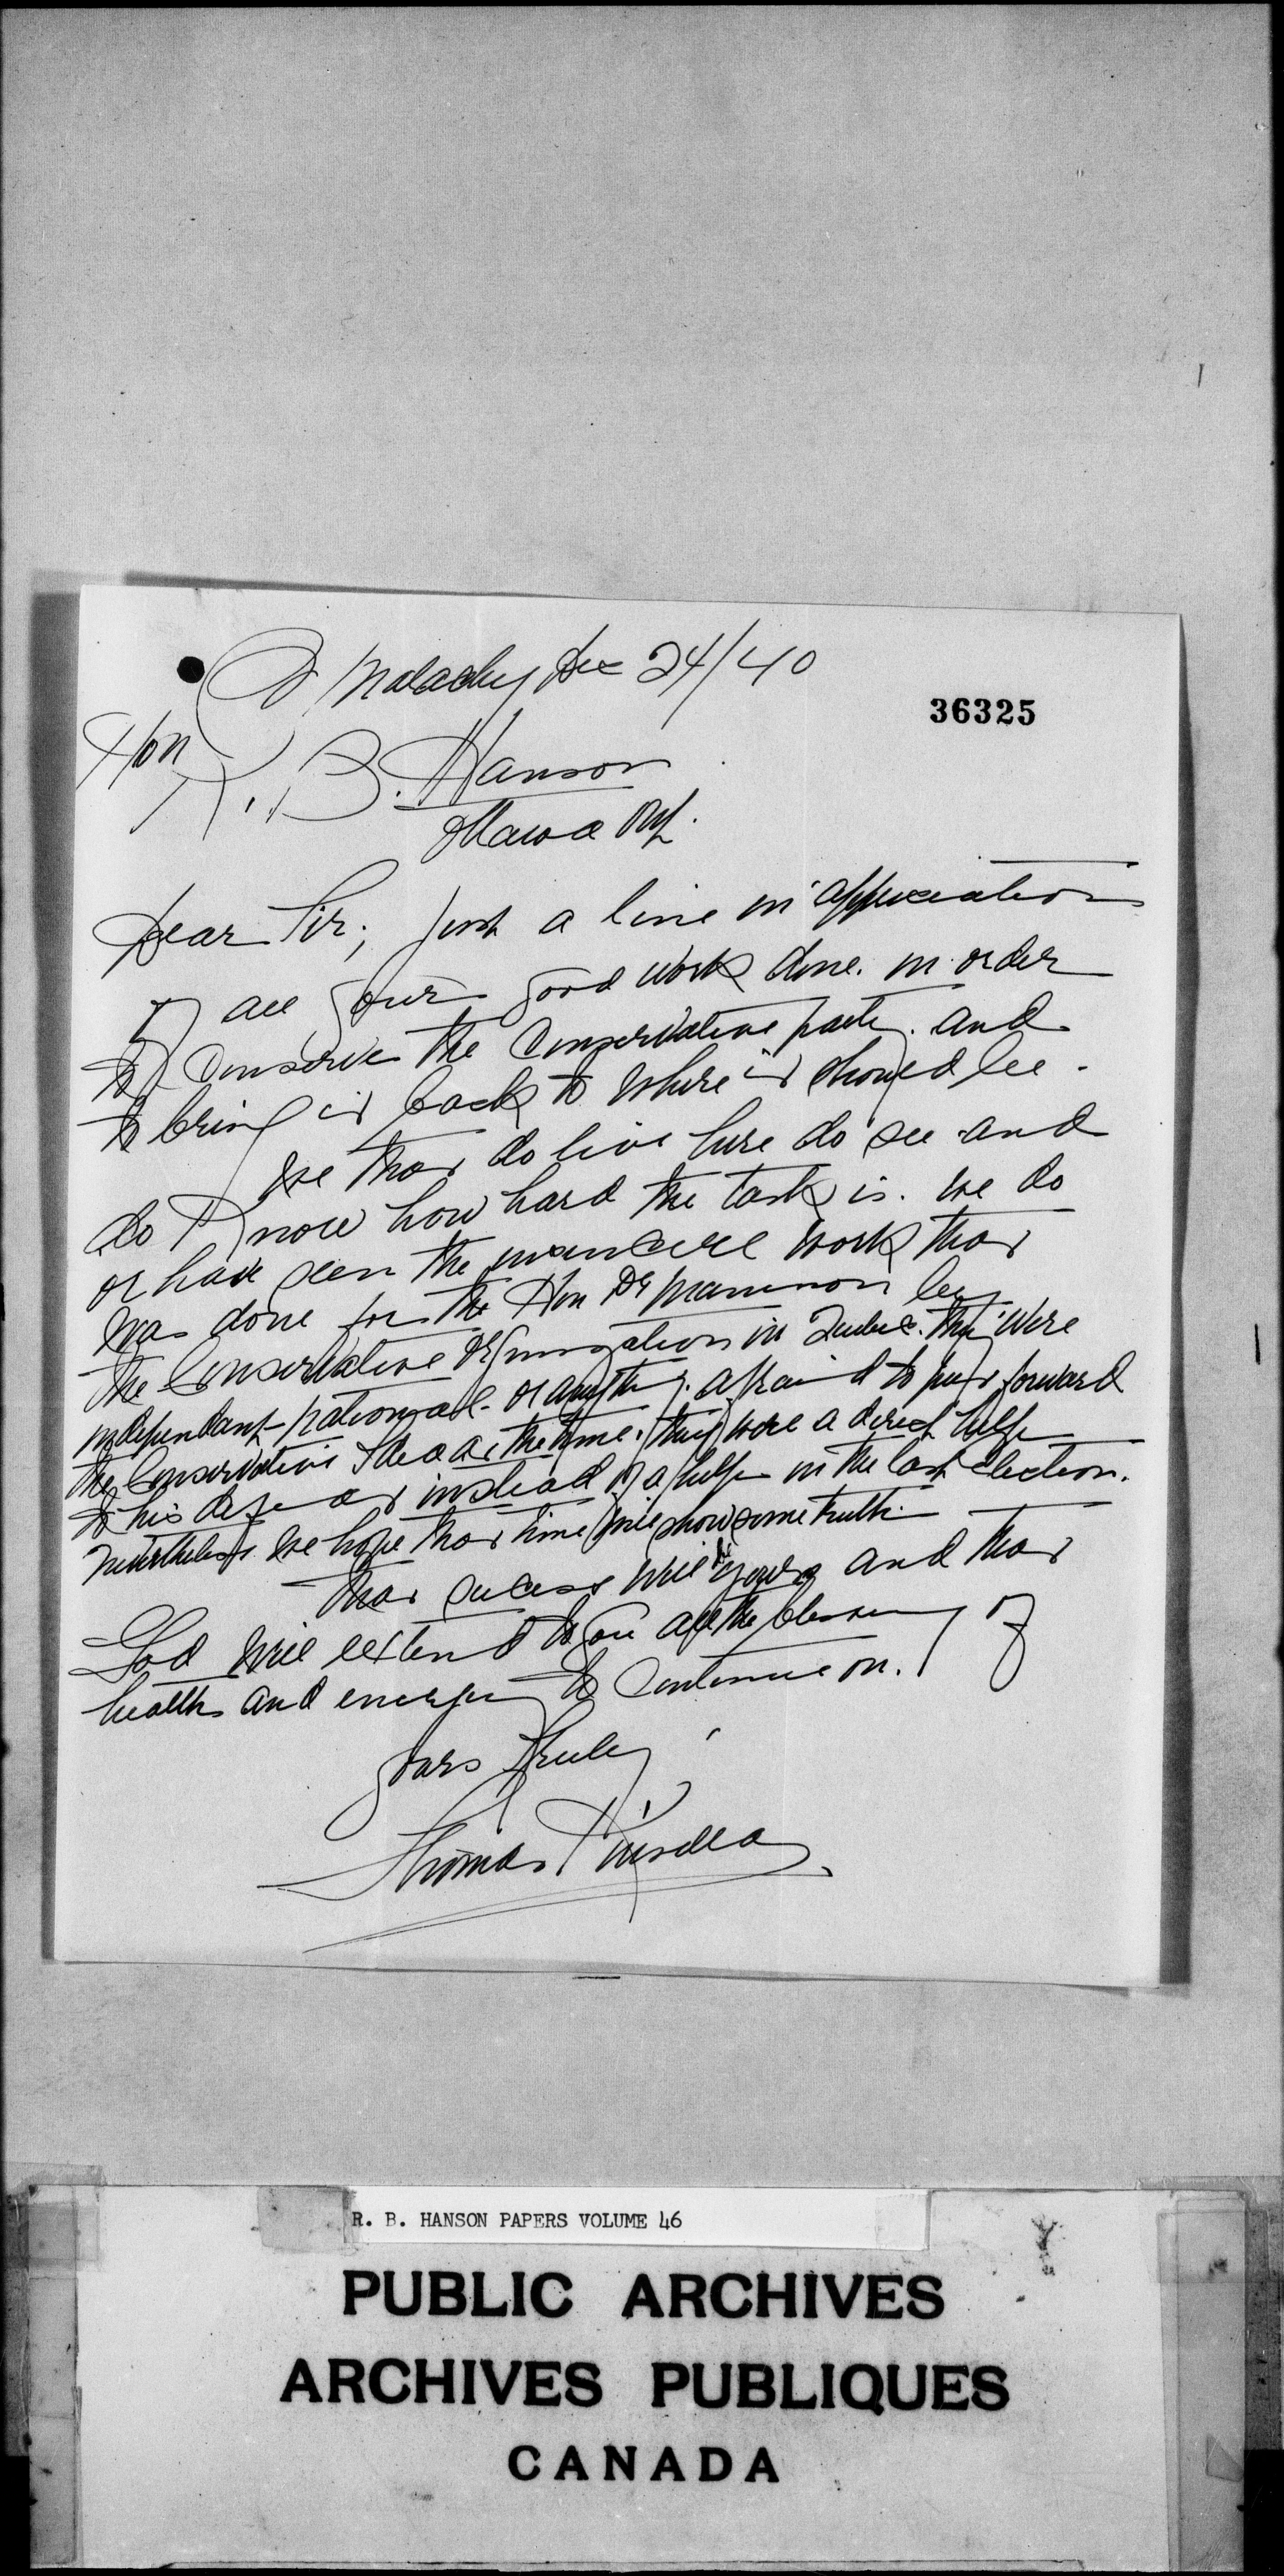 St Malachy Dec 24/40
36325
Hon
R. B. Hanson
Ottawa Ont.
Dear Sir; Just a line in appreciation
of all your good work done. in order
to Conserve the Conservative party. and
to bring it back to where it should be.
We that do live here do see and
do Know how hard the task is. We do
or have seen the work that
was done for the Hon Dr Mannion by
the Conservative Organization in Quebec. they were
independant national- or anything. afraid to put forward
the Conservative Idea at the time. they were a direct help
to his defeat instead of a help in the last Election.
nevertheless we hope that time will show some truth.
that success will be yours and that
God will extend to you all the blessing of
health and energy to Continue on.
Yours Truly
Thomas Kinsella
R. B. HANSON PAPERS VOLUME 46
PUBLIC ARCHIVES
ARCHIVES PUBLIQUES
CANADA